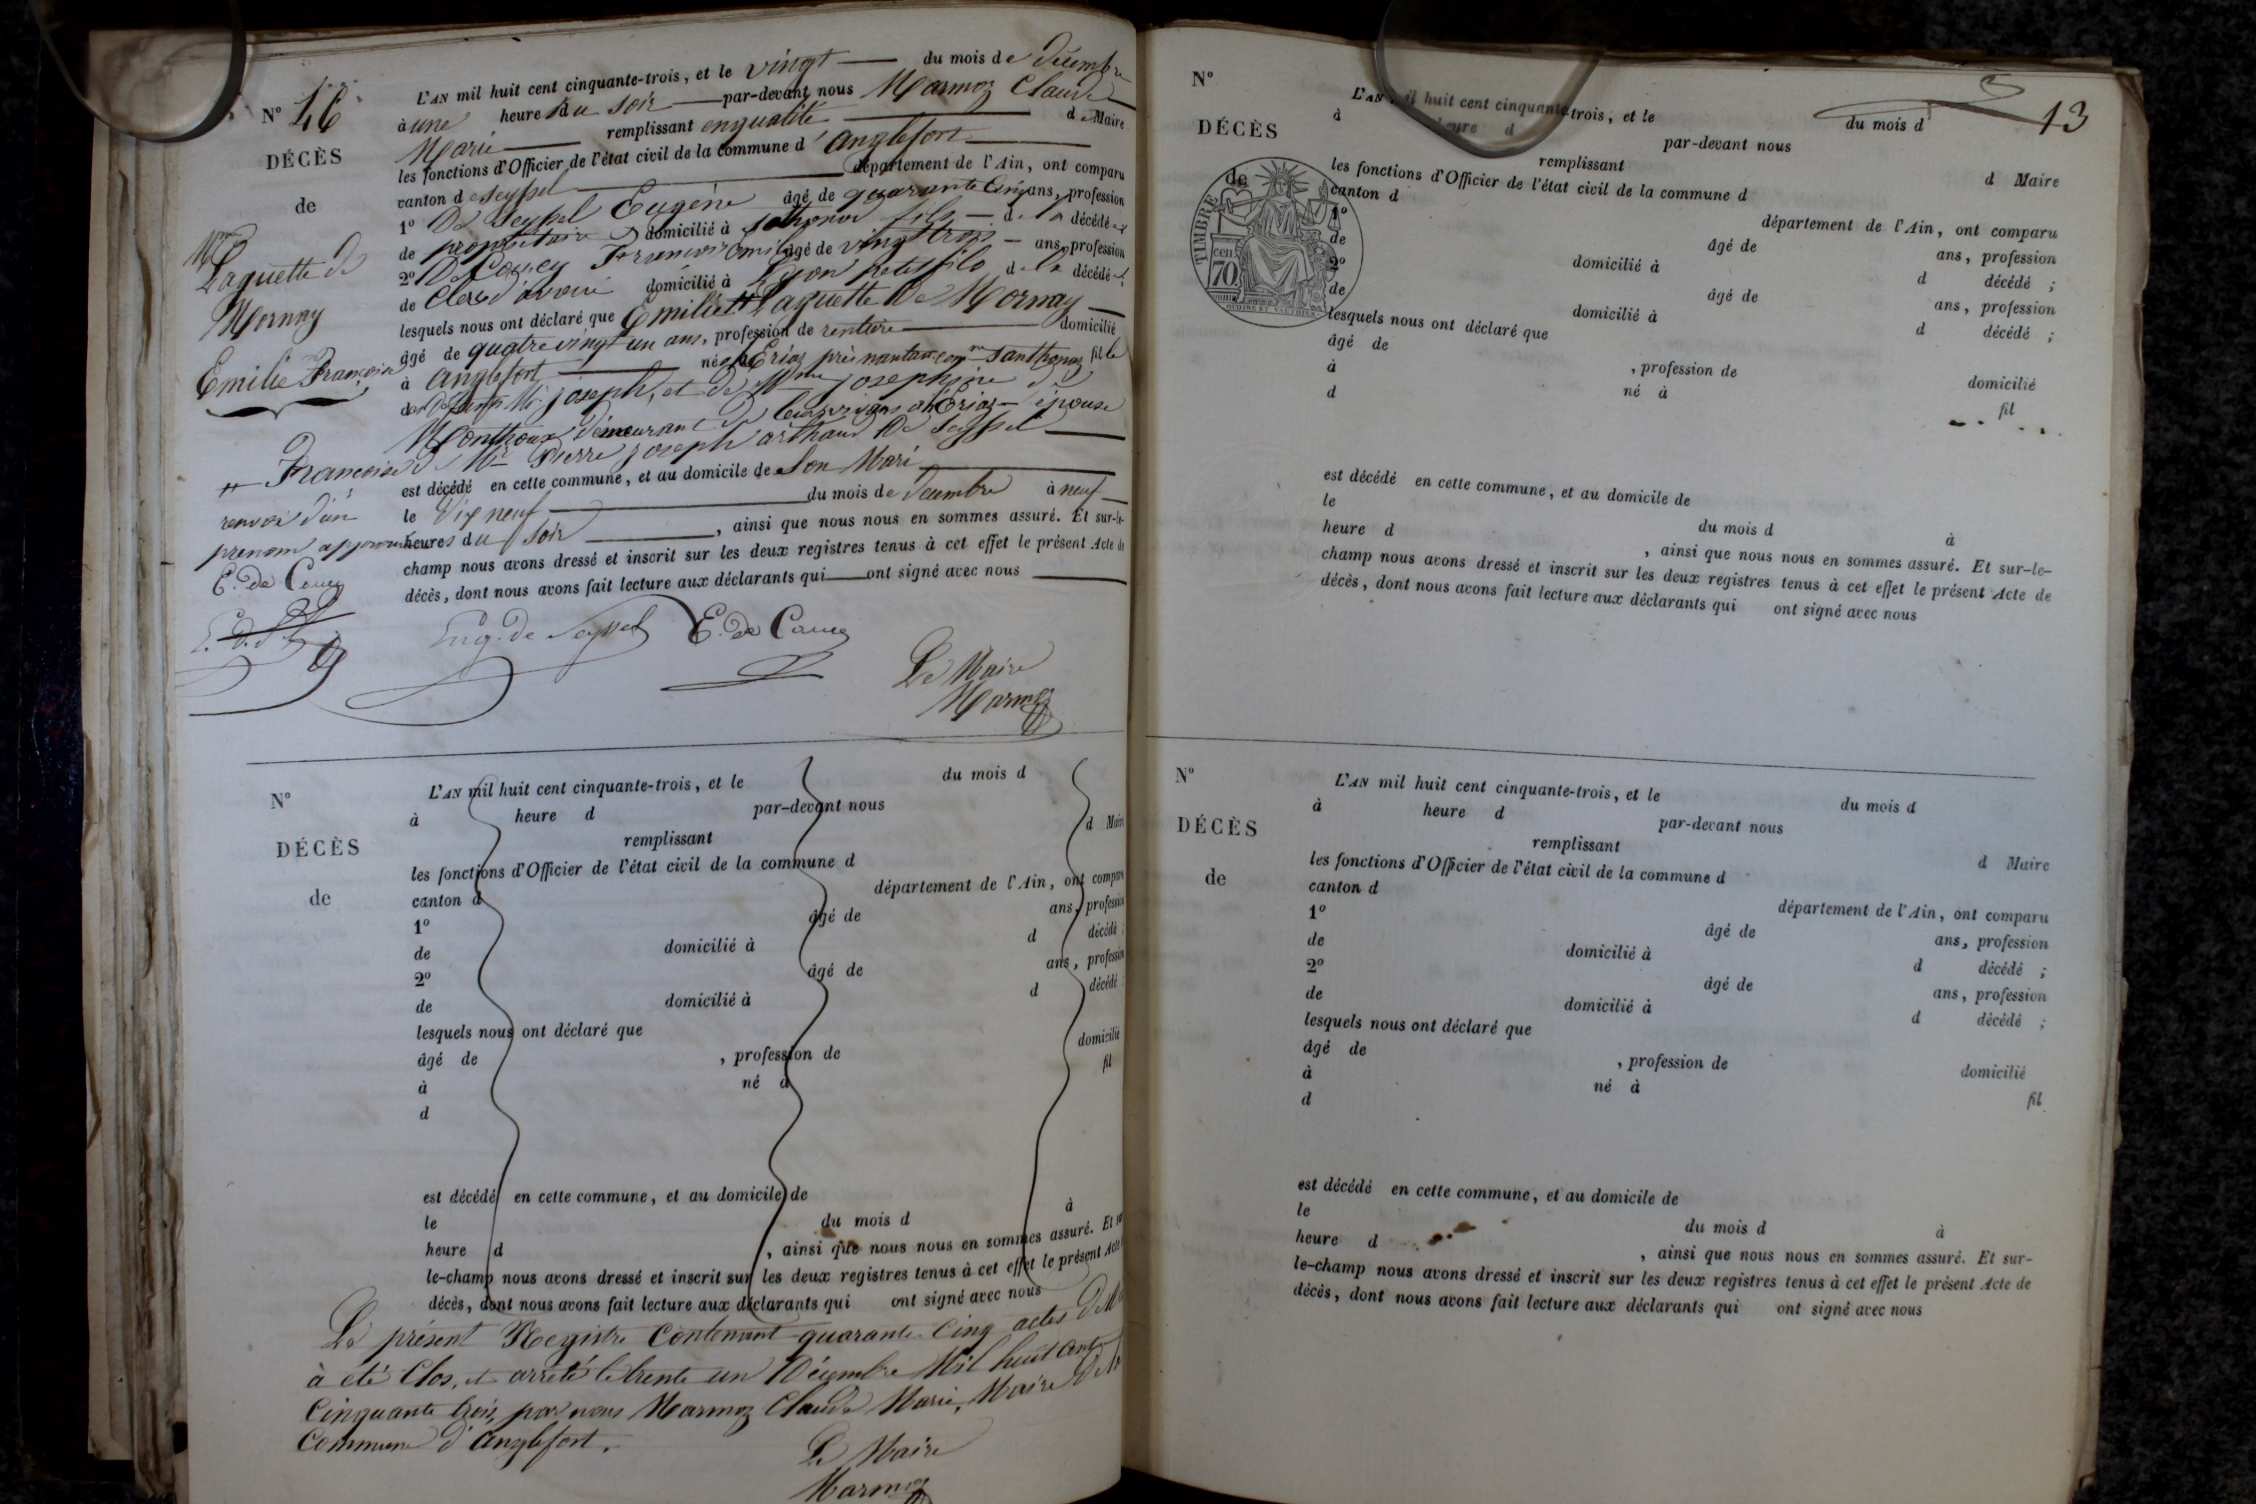 N° 46
DÉCÈS
de
Mme
Laguette de
Mornay
Emilie Françoise
L'AN mil huit cent cinquante-trois, et le vingt du mois de décembre
à une heure du soir par-devant nous Marmoz Claude
Marie remplissant en qualité de Maire
les fonctions d'Officier de l'état civil de la commune d'anglefort
canton de seyssel département de l'Ain, ont comparu
1° De Seyssel Eugène âgé de quarante cinq ans, profession
de propriétaire domicilié à sothonod fils de la décédée;
2° De Coucy François Emile âgé de vingt trois ans, profession
de Clerc d'avoué domicilié à Lyon petit fils de la décédée;
lesquels nous ont déclaré que Emilie # Laguette De Mornay
âgé de quatre vingt un ans, profession de rentière domicilié
à anglefort né à près nantua fille
de Mr joseph, et de Mme josephine de
Monthoux demeurant de leurs vivans épouse
de Mr Pierre joseph arthaud De Seyssel
est décédé en cette commune, et au domicile de Son Mari
le dix neuf du mois de décembre à neuf
heures du soir, ainsi que nous nous en sommes assuré. Et sur-le-
champ nous avons dressé et inscrit sur les deux registres tenus à cet effet le présent Acte de
décès, dont nous avons fait lecture aux déclarants qui ont signé avec nous
# Françoise
renvoi d'un
prenom approuvé
E. de Coucy
E. d. S.
Eug. de Seyssel E. de Coucy
Le Maire
Marmoz
N°
DÉCÈS
de
L'AN mil huit cent cinquante-trois, et le du mois d
à heure d par-devant nous
remplissant d Maire
les fonctions d'Officier de l'état civil de la commune d
canton d département de l'Ain, ont comparu
1° âgé de ans, profession
de domicilié à d décédé ;
2° âgé de ans, profession
de domicilié à d décédé ;
lesquels nous ont déclaré que
âgé de , profession de domicilié
à né à fil
d
est décédé en cette commune, et au domicile de
le du mois d à
heure d , ainsi que nous nous en sommes assuré. Et sur-
le-champ nous avons dressé et inscrit sur les deux registres tenus à cet effet le présent Acte
décès, dont nous avons fait lecture aux déclarants qui ont signé avec nous
Le présent Registre Contenant quarante Cinq actes
à été Clos, et arrêté le trente un Décembre Mil huit Cent
Cinquante trois, par nous Marmoz Claude Marie, Maire de la
Commune d'anglefort.
Le Maire
Marmoz
13
N°
DÉCÈS
de
TIMBRE
70
L'AN mil huit cent cinquante-trois, et le du mois d
à heure d par-devant nous
remplissant d Maire
les fonctions d'Officier de l'état civil de la commune d
canton d département de l'Ain, ont comparu
1° âgé de ans, profession
de domicilié à d décédé ;
2° âgé de ans, profession
de domicilié à d décédé ;
lesquels nous ont déclaré que
âgé de , profession de domicilié
à né à fil
d
est décédé en cette commune, et au domicile de
le du mois d à
heure d , ainsi que nous nous en sommes assuré. Et sur-le-
champ nous avons dressé et inscrit sur les deux registres tenus à cet effet le présent Acte de
décès, dont nous avons fait lecture aux déclarants qui ont signé avec nous
N°
DÉCÈS
de
L'AN mil huit cent cinquante-trois, et le du mois d
à heure d par-devant nous
remplissant d Maire
les fonctions d'Officier de l'état civil de la commune d
canton d département de l'Ain, ont comparu
1° âgé de ans, profession
de domicilié à d décédé ;
2° âgé de ans, profession
de domicilié à d décédé ;
lesquels nous ont déclaré que
âgé de , profession de domicilié
à né à fil
d
est décédé en cette commune, et au domicile de
le du mois d à
heure d , ainsi que nous nous en sommes assuré. Et sur-
le-champ nous avons dressé et inscrit sur les deux registres tenus à cet effet le présent Acte de
décès, dont nous avons fait lecture aux déclarants qui ont signé avec nous